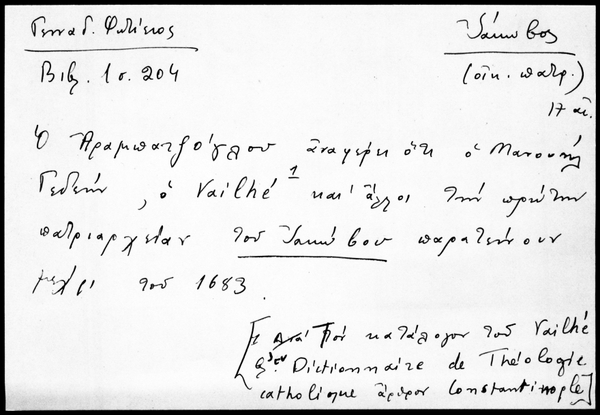 Γενναδ. Φυτιειος
Ἰάκωβος
Βιβ. 1 σ. 204
(οἰκ. πατρ.)
17 αἰ.
Ὁ Ἀραμπατζόγλου ἀναφέρει ὅτι ὁ Μανουήλ
Γεδεών, ὁ Vailhé 1 καί ἄλλοι τήν πρώτην
πατριαρχείαν τοῦ Ἰακώβου παρατείνουν
μέχρι τοῦ 1683
[1 τόν κατάλογον τοῦ Vailhé
Dictionnaire de Théologie
catholique ἄρθρον Constantinople]